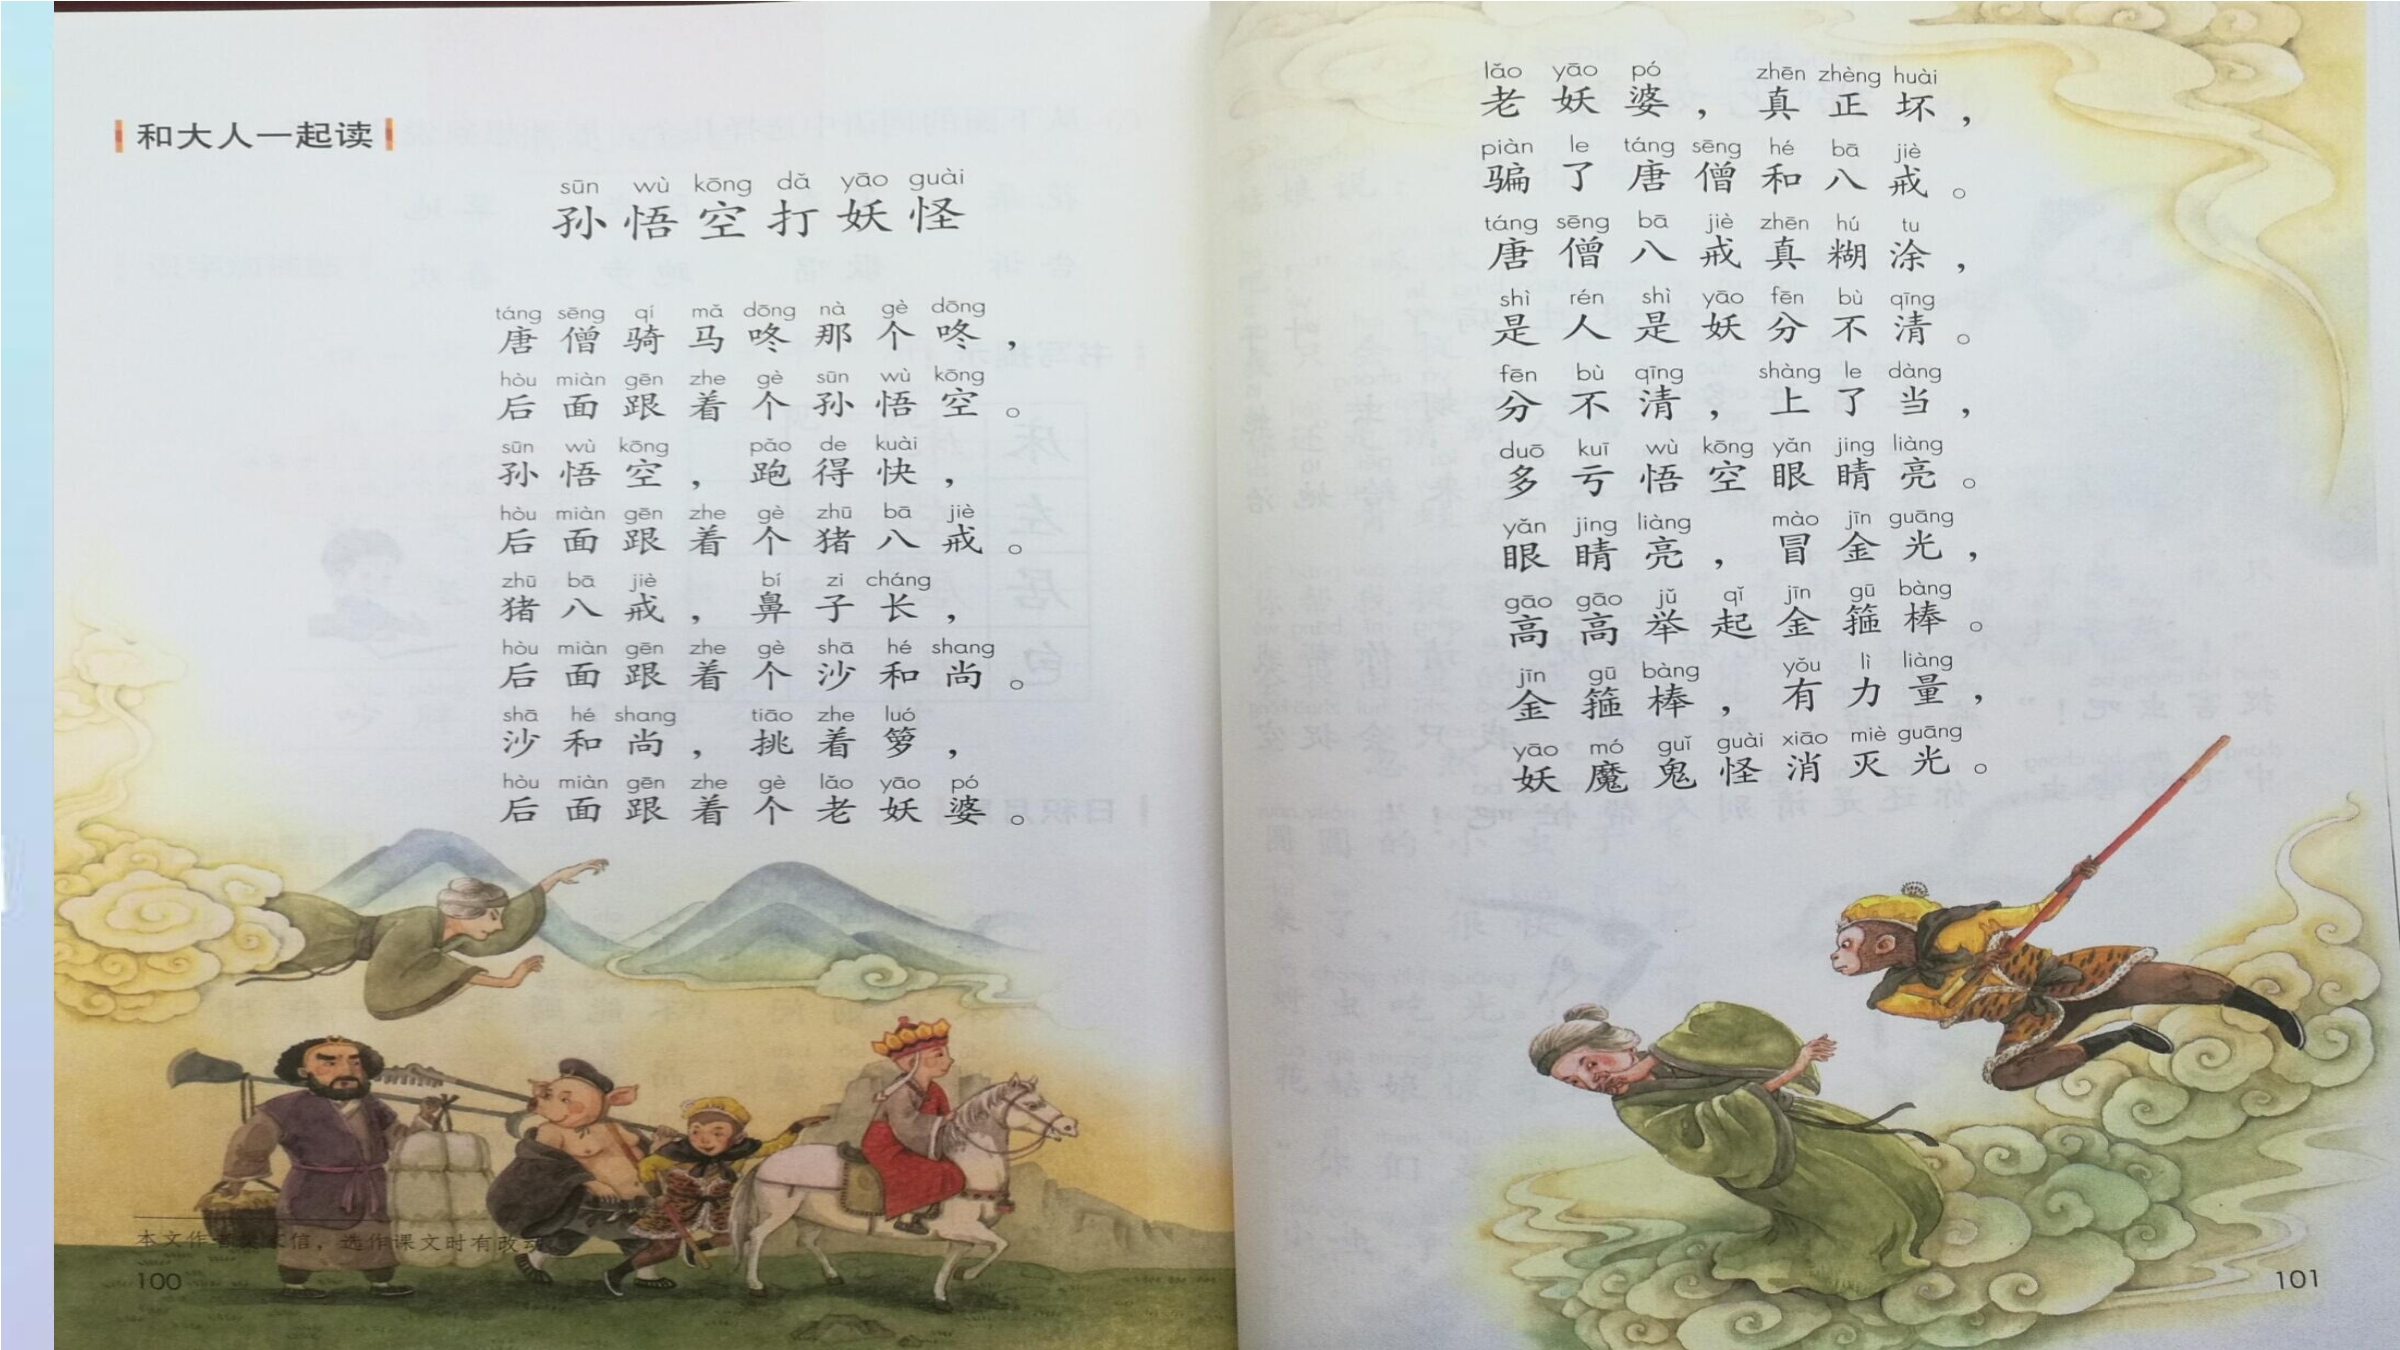 和大人一起读
sūn wù kōng dǎ yāo guài
孙悟空打妖怪
táng sēng qí mǎ dōng nà gè dōng
唐僧骑马咚那个咚，
hòu miàn gēn zhe gè sūn wù kōng
后面跟着个孙悟空。
sūn wù kōng pǎo de kuài
孙悟空，跑得快，
hòu miàn gēn zhe gè zhū bā jiè
后面跟着个猪八戒。
zhū bā jiè bí zi cháng
猪八戒，鼻子长，
hòu miàn gēn zhe gè shā hé shang
后面跟着个沙和尚。
shā hé shang tiāo zhe luó
沙和尚，挑着箩，
hòu miàn gēn zhe gè lǎo yāo pó
后面跟着个老妖婆。
本文作者信，选作课文时有改动
100
lǎo yāo pó zhēn zhèng huài
老妖婆，真正坏，
piàn le táng sēng hé bā jiè
骗了唐僧和八戒。
táng sēng bā jiè zhēn hú tu
唐僧八戒真糊涂，
shì rén shì yāo fēn bù qīng
是人是妖分不清。
fēn bù qīng shàng le dàng
分不清，上了当，
duō kuī wù kōng yǎn jing liàng
多亏悟空眼睛亮。
yǎn jing liàng mào jīn guāng
眼睛亮，冒金光，
gāo gāo jǔ qǐ jīn gū bàng
高高举起金箍棒。
jīn gū bàng yǒu lì liàng
金箍棒，有力量，
yāo mó guǐ guài xiāo miè guāng
妖魔鬼怪消灭光。
101